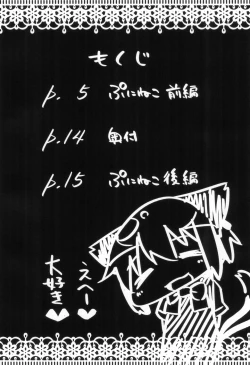 もくじ
p. 5 ぷにねこ 前編
p. 14 奥付
p. 15 ぷにねこ 後編
えへー♥
大好き♥